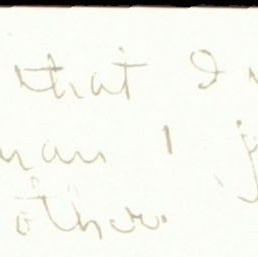 that I
man I
other.